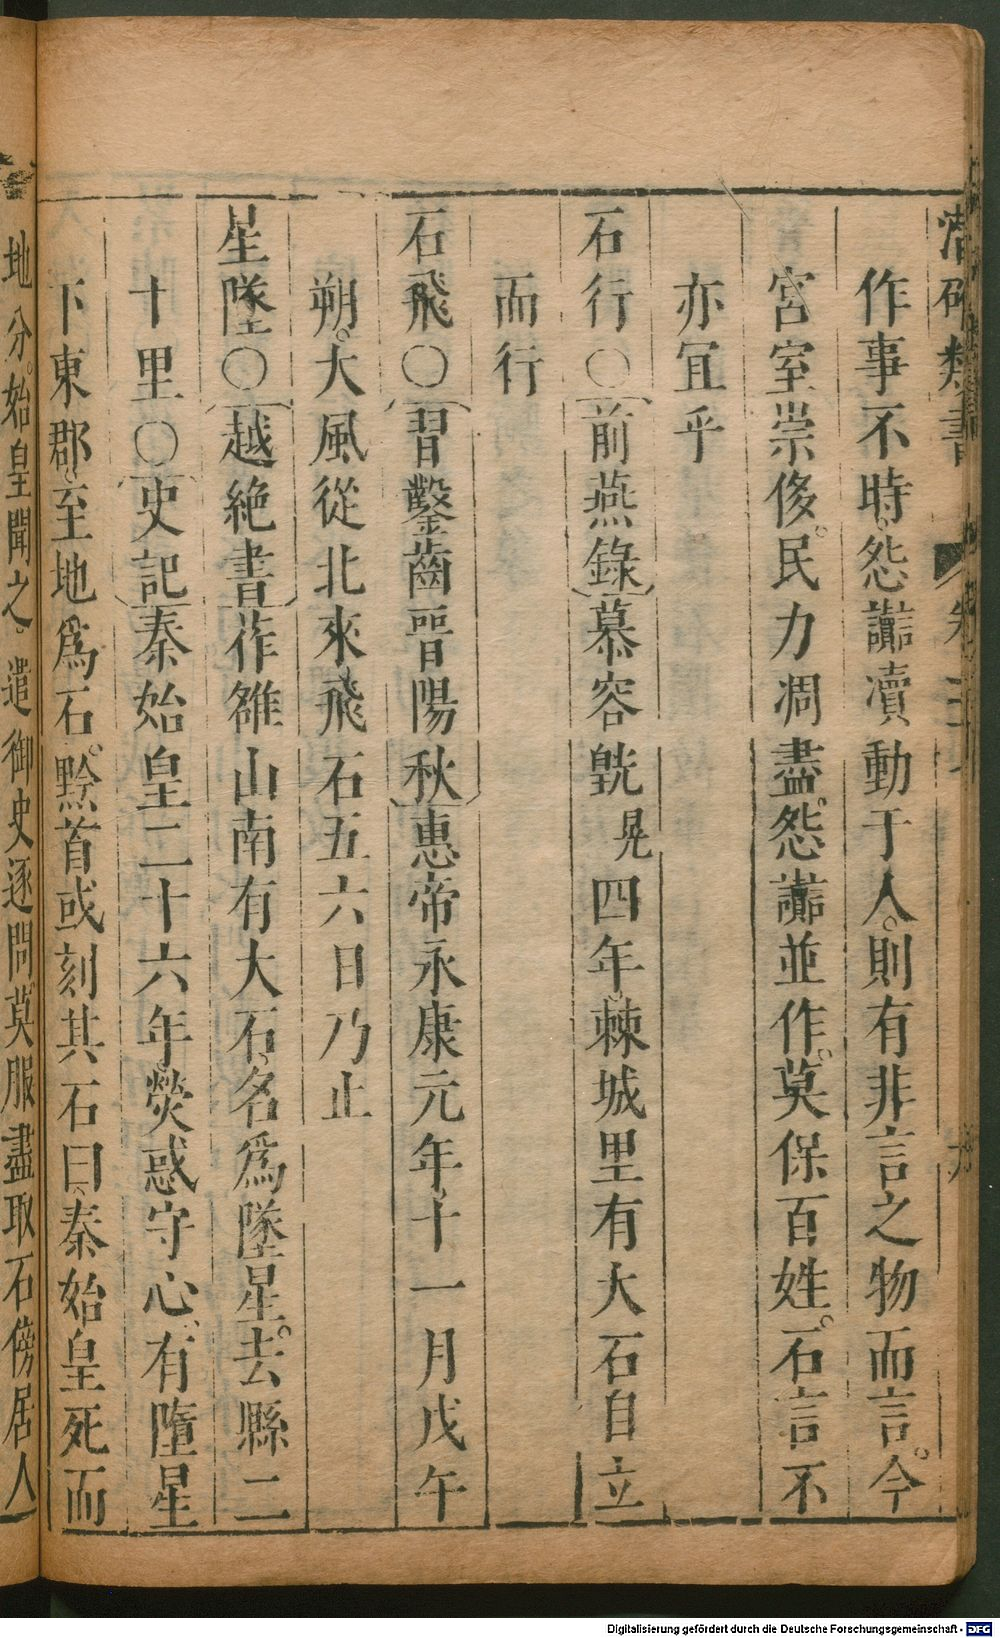 作事不時怨讟凟動于人則有非言之物而言今
宮室崇侈民力凋盡怨讟並作莫保百姓石言不
亦冝乎
石行〇前燕錄慕容皝晃四年棘城里有大石自立
而行
石飛〇習鑿齒晉陽秋惠帝永康元年十一月戊午
朔大風從北來飛石五六日乃止
星墜〇越絶書莋雒山南有大石名爲墜星去縣二
十里〇史記秦始皇二十六年熒惑守心有墮星
下東郡至地爲石黔首或刻其石曰秦始皇死而
地分始皇聞之遣御史逐問莫服盡取石傍居人
Digitalisierung gefördert durch die Deutsche Forschungsgemeinschaft - DFG